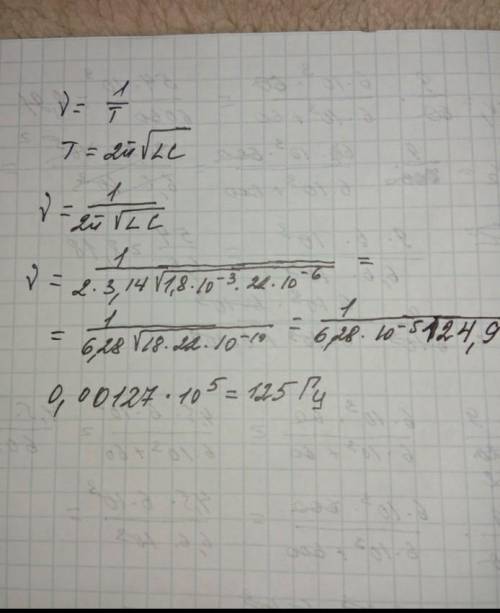 ν = 1/T
T = 2π√LC
ν = 1/2π√LC
ν = 1/2·3,14√1,8·10⁻³·22·10⁻⁶ =
= 1/6,28√18·22·10⁻¹⁰ = 1/6,28·10⁻⁵·124,9
0,00127·10⁵ = 125 Гц